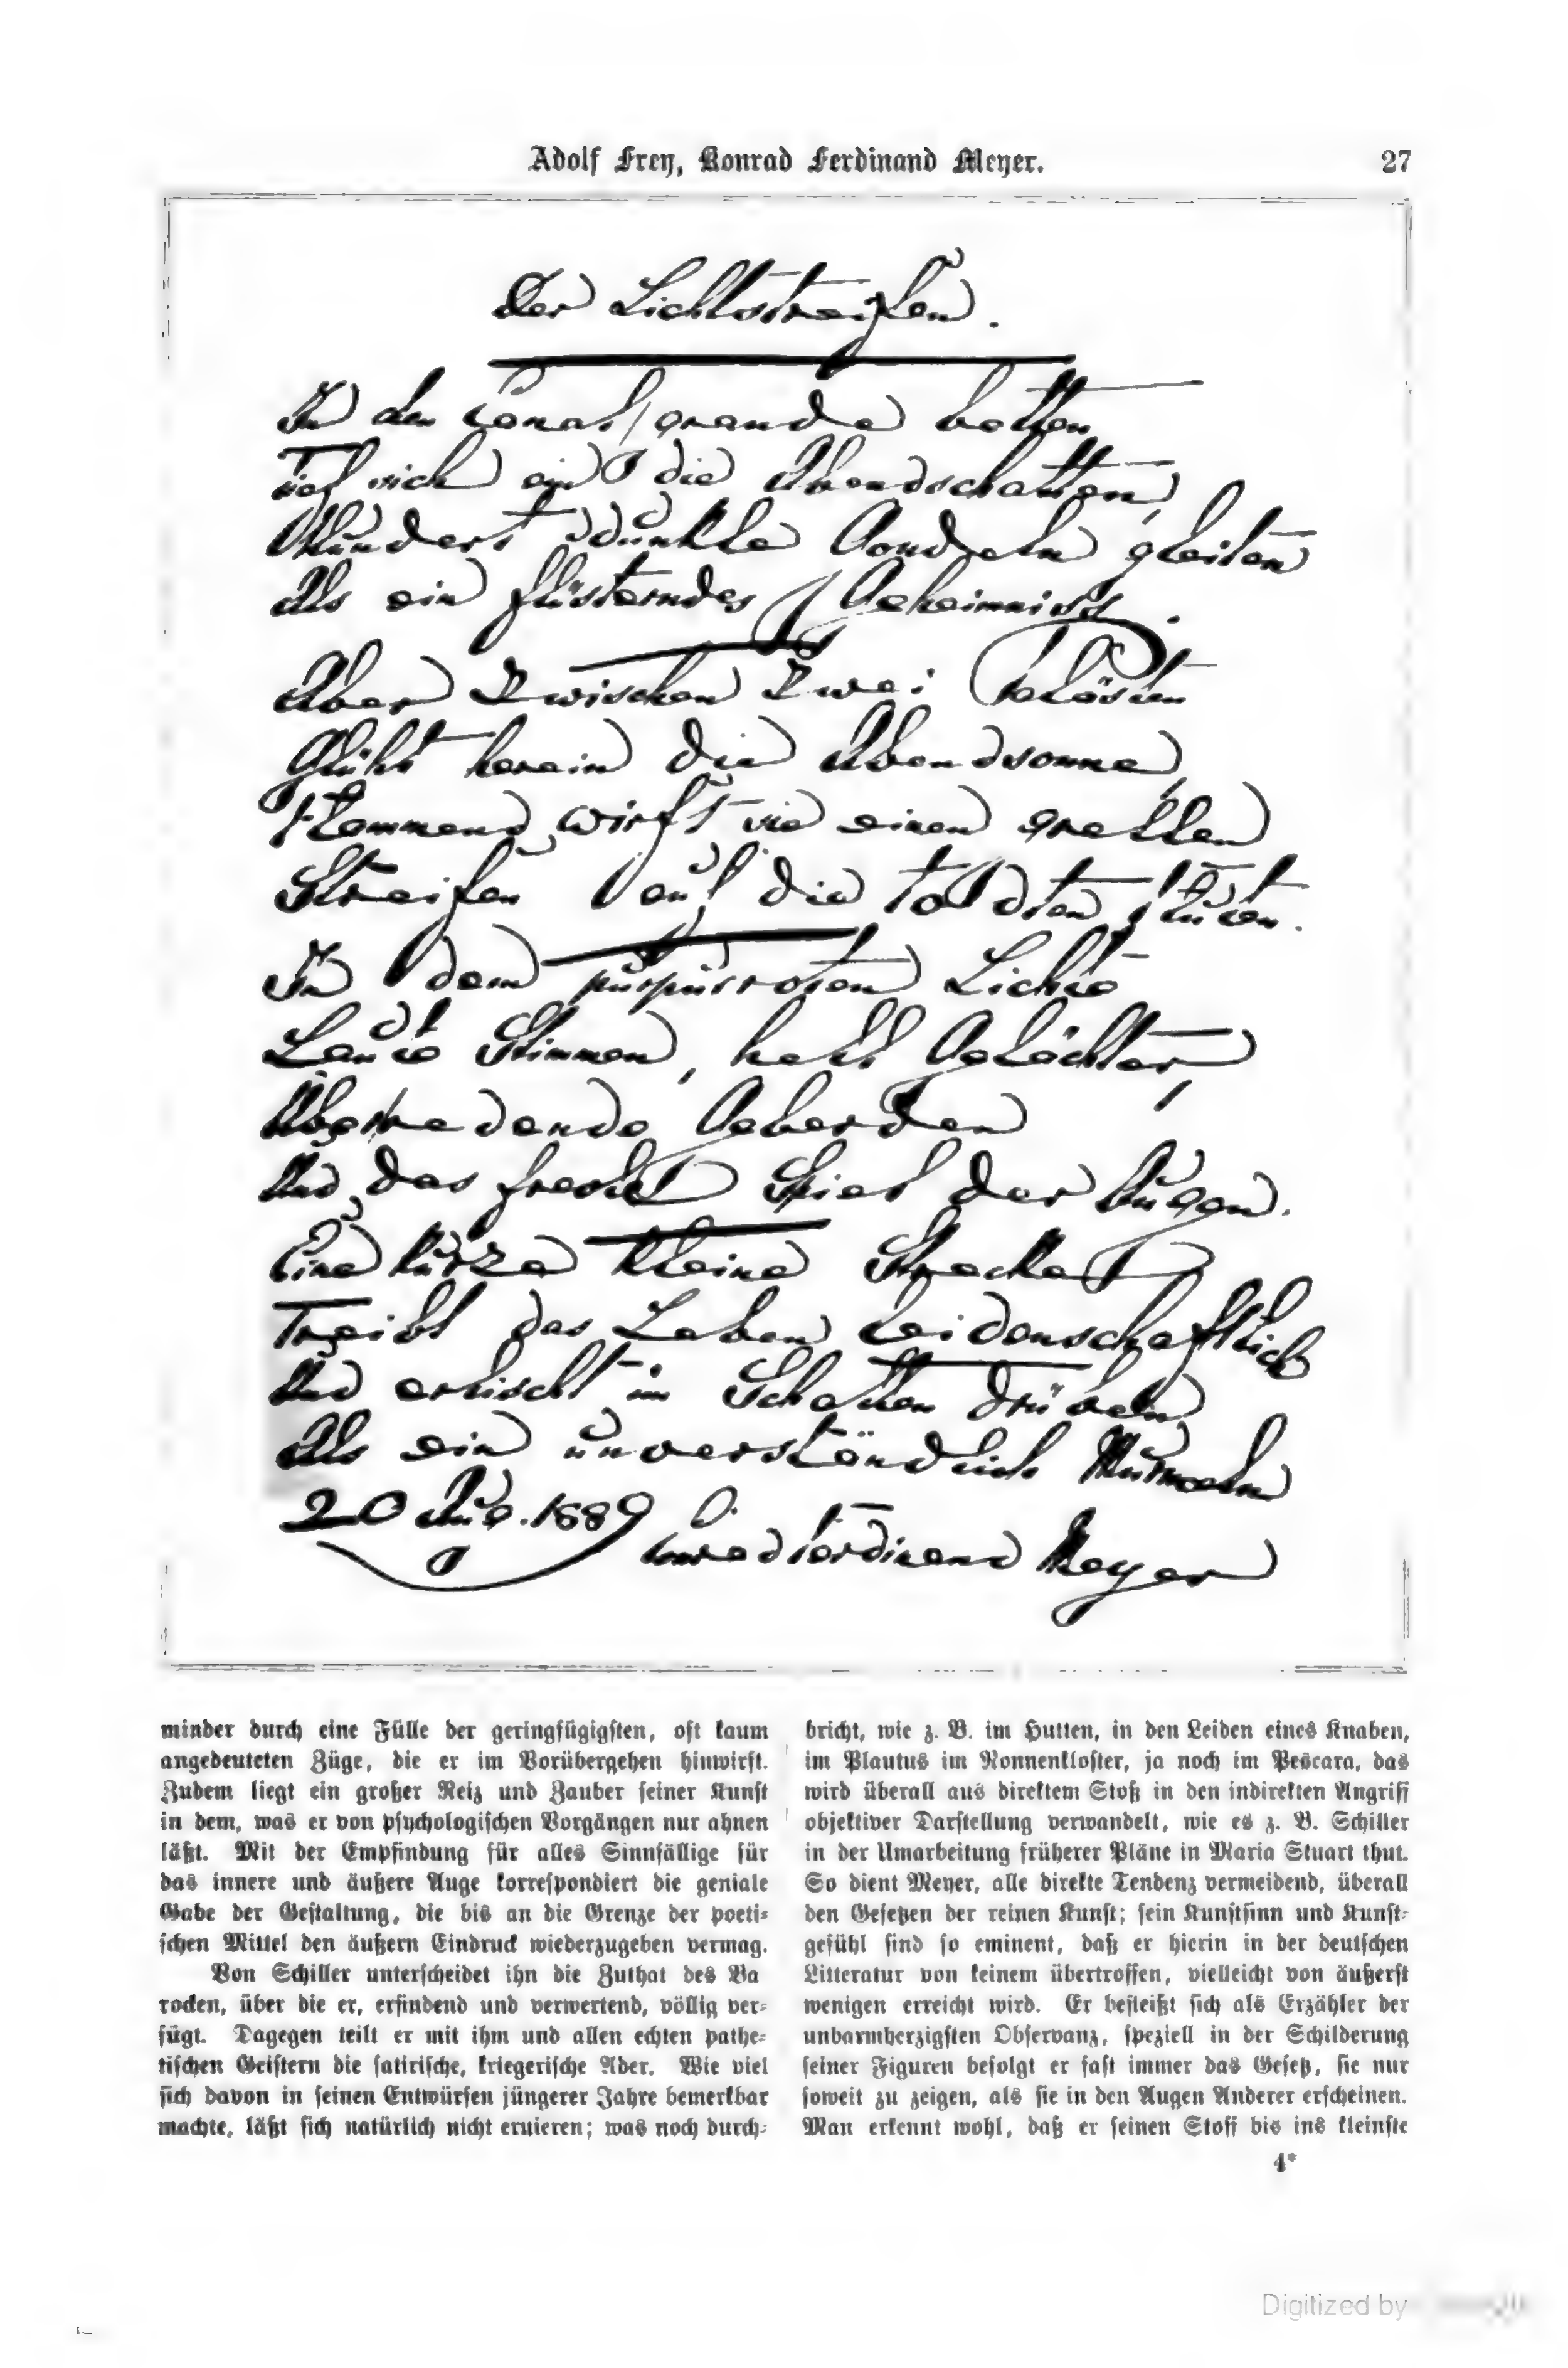 Adolf Frey, Konrad Ferdinand Meyer.
27
Der Lichtstreifen.
In den Canal grande betten
Tief sich ein die Abendschatten,
Hundert dunkle Gondeln gleiten
Als ein flüsterndes Geheimniss.
Aber zwischen zwei Palästen
Glüht herein die Abendsonne,
Flammend wirft sie einen grellen
Streifen auf die
In dem purpurroten Lichte
Laute Stimmen, hell Gelächter,
Überredende Geberden
Und das frevle Spiel der Augen.
Eine kurze kleine Strecke
Treibt das Leben leidenschaftlich
Und erlischt im Schatten drüben
Als ein unverständlich Murmeln
20 Aug. 1889
Conrad Ferdinand Meyer
minder durch eine Fülle der geringfügigsten, oft kaum
angedeuteten Züge, die er im Vorübergehen hinwirft.
Zudem liegt ein großer Reiz und Zauber seiner Kunst
in dem, was er von psychologischen Vorgängen nur ahnen
läßt. Mit der Empfindung für alles Sinnfällige für
das innere und äußere Auge korrespondiert die geniale
Gabe der Gestaltung, die bis an die Grenze der poeti-
schen Mittel den äußern Eindruck wiederzugeben vermag.
Von Schiller unterscheidet ihn die Zuthat des Ba
rocken, über die er, erfindend und verwertend, völlig ver-
fügt. Dagegen teilt er mit ihm und allen echten pathe-
tischen Geistern die satirische, kriegerische Ader. Wie viel
sich davon in seinen Entwürfen jüngerer Jahre bemerkbar
machte, läßt sich natürlich nicht eruieren; was noch durch-
bricht, wie z. B. im Hutten, in den Leiden eines Knaben,
im Plautus im Nonnenkloster, ja noch im Pescara, das
wird überall aus direktem Stoß in den indirekten Angriff
objektiver Darstellung verwandelt, wie es z. B. Schiller
in der Umarbeitung früherer Pläne in Maria Stuart thut.
So dient Meyer, alle direkte Tendenz vermeidend, überall
den Gesetzen der reinen Kunst; sein Kunstsinn und Kunst-
gefühl sind so eminent, daß er hierin in der deutschen
Litteratur von keinem übertroffen, vielleicht von äußerst
wenigen erreicht wird. Er befleißt sich als Erzähler der
unbarmherzigsten Observanz, speziell in der Schilderung
seiner Figuren befolgt er fast immer das Gesetz, sie nur
soweit zu zeigen, als sie in den Augen Anderer erscheinen.
Man erkennt wohl, daß er seinen Stoff bis ins kleinste
4*
Digitized by